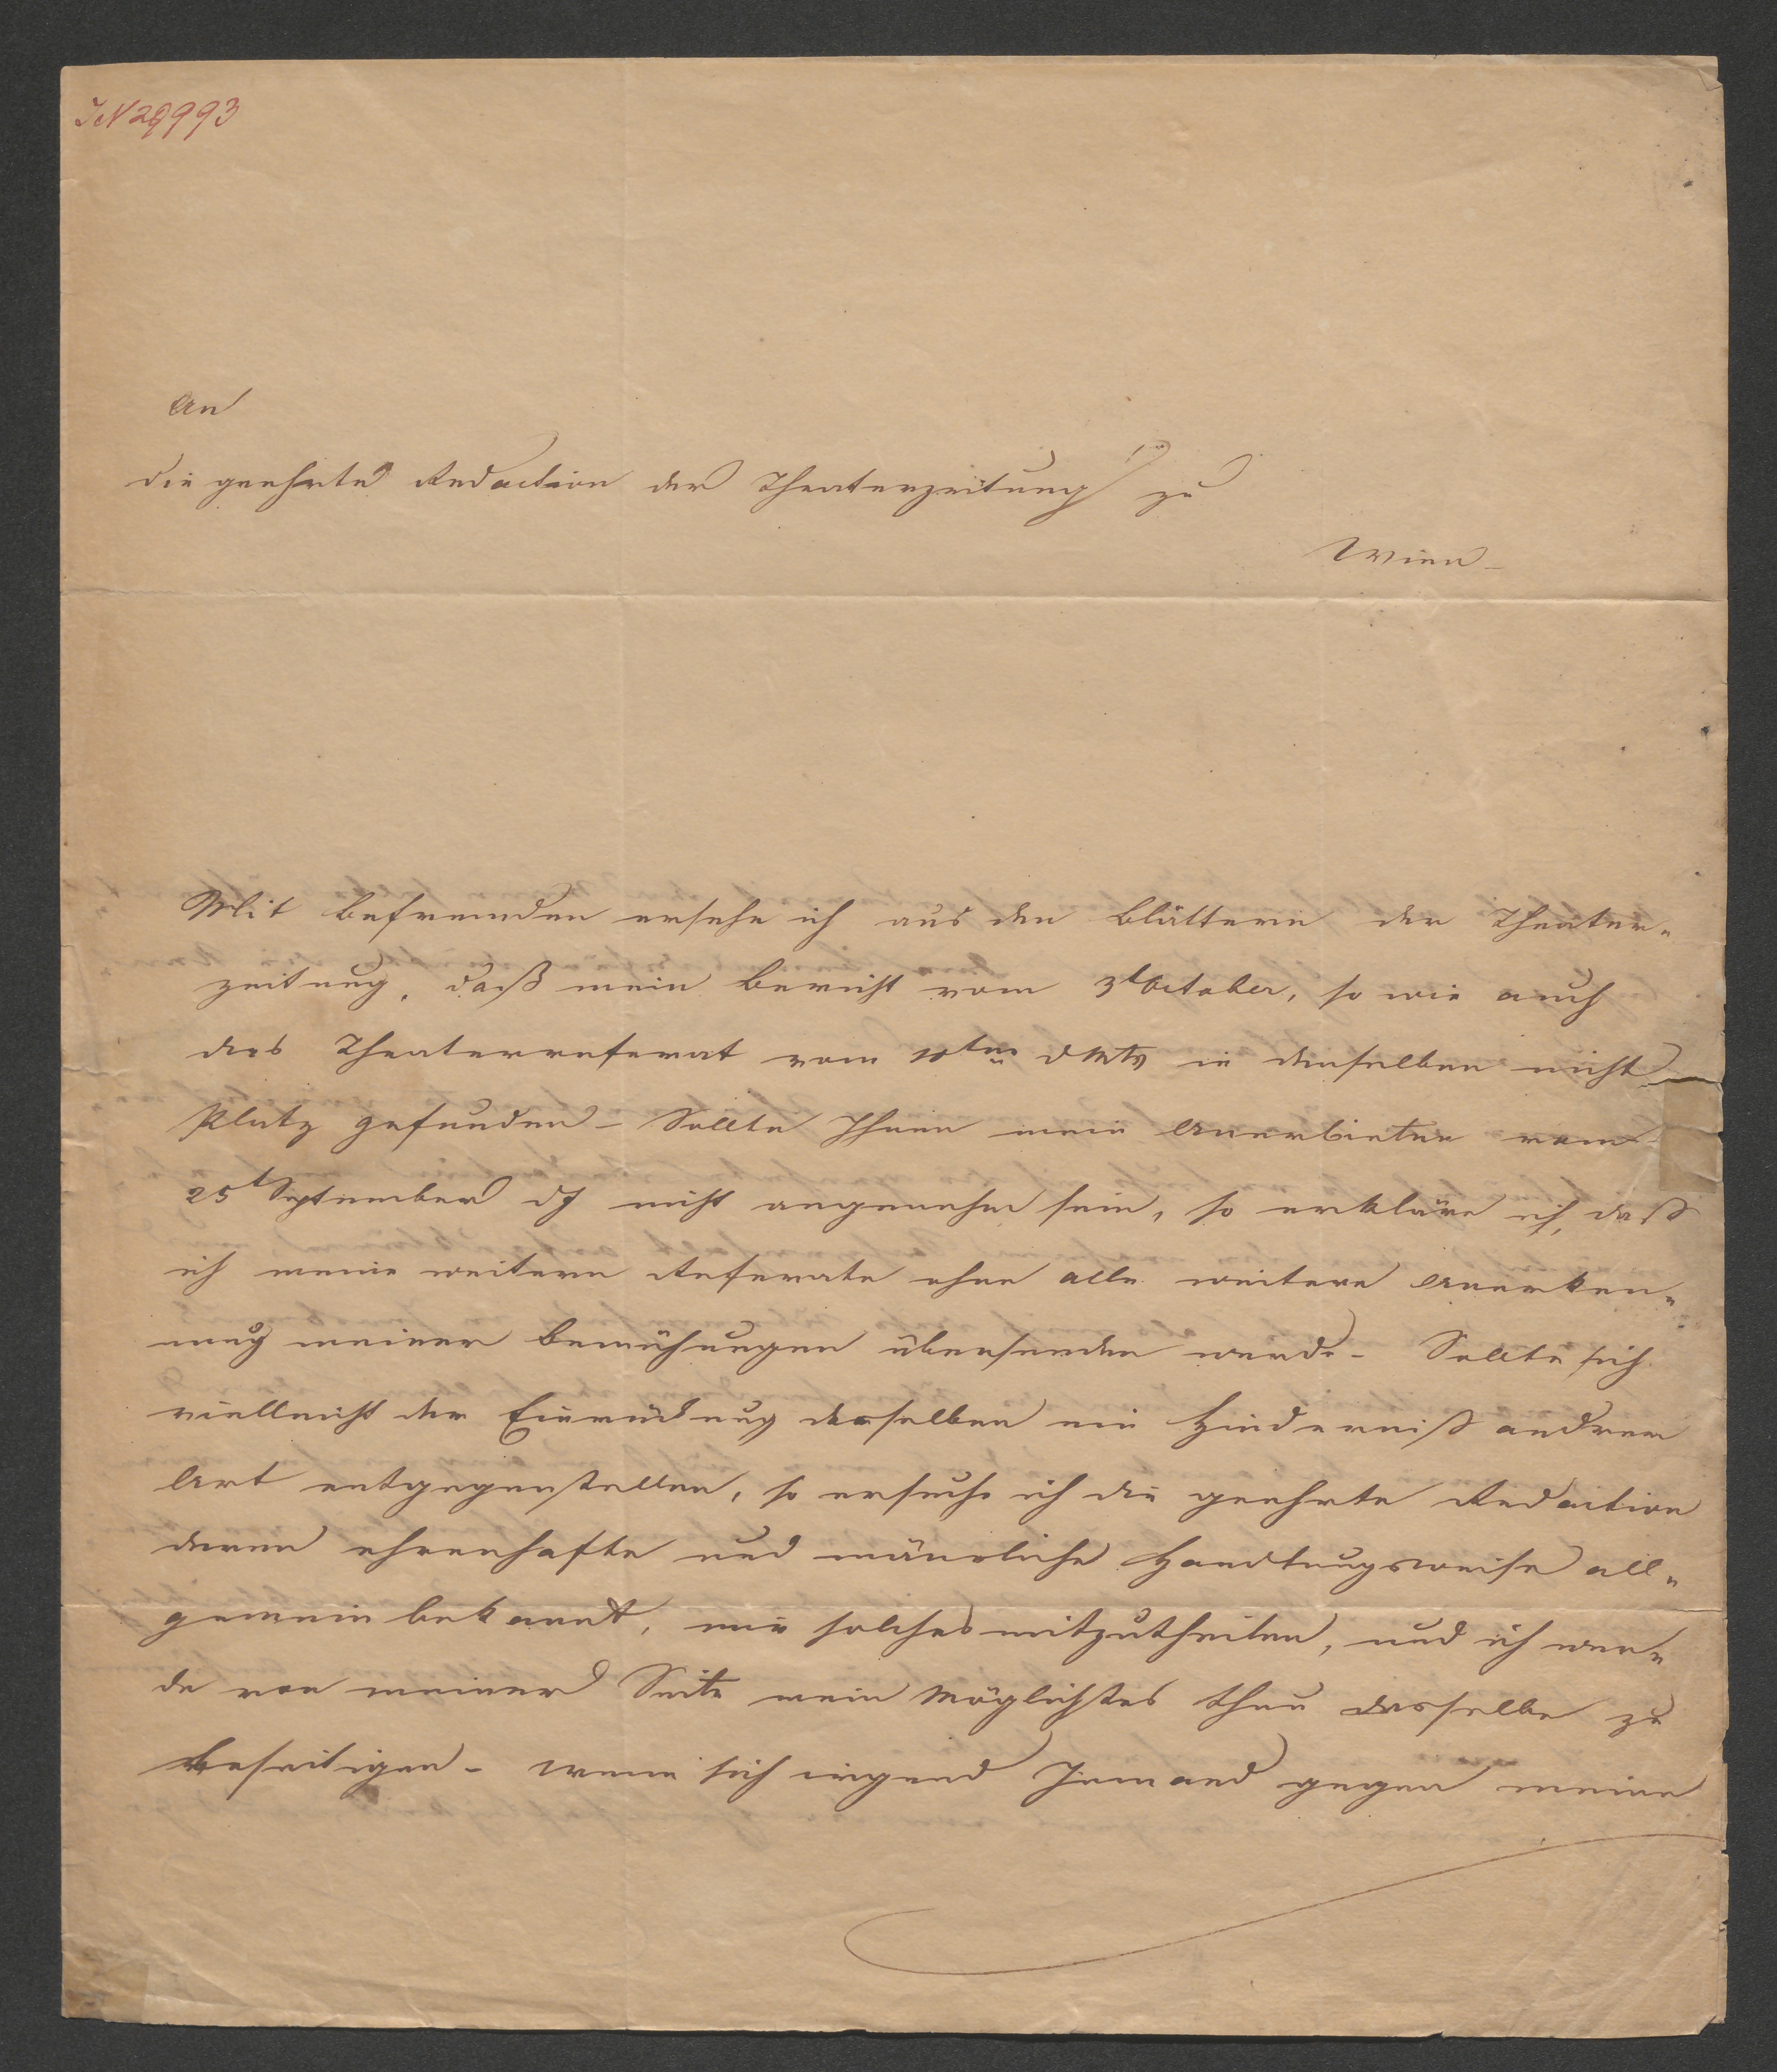 IN 29993
An
die geehrte Redaction der Theaterzeitung zu
Wien_
Mit Befremden ersehe ich aus den Blättern der Theater„
zeitung, daß mein Bericht vom 3t October, so wie auch
das Theaterreferat vom 10ten d Mts in denselben nicht
Platz gefunden – Sollte Ihnen mein Anerbieten vom
25t September dJ nicht angenehm sein, so erkläre ich, daß
ich meine weitern Referate ohne alle weitere Anerken„
nung meiner Bemühungen übersenden werde – Sollte sich
vielleicht der Einrückung derselben ein Hinderniß andrer
Art entgegenstellen, so ersuche ich die geehrte Redaction
deren ehrenhafte und männliche Handlungsweise all„
gemein bekannt, mir solches mitzutheilen, und ich wer„
de von meiner Seite mein Möglichstes thun dasselbe zu
beseitigen – wenn sich irgend Jemand gegen meine